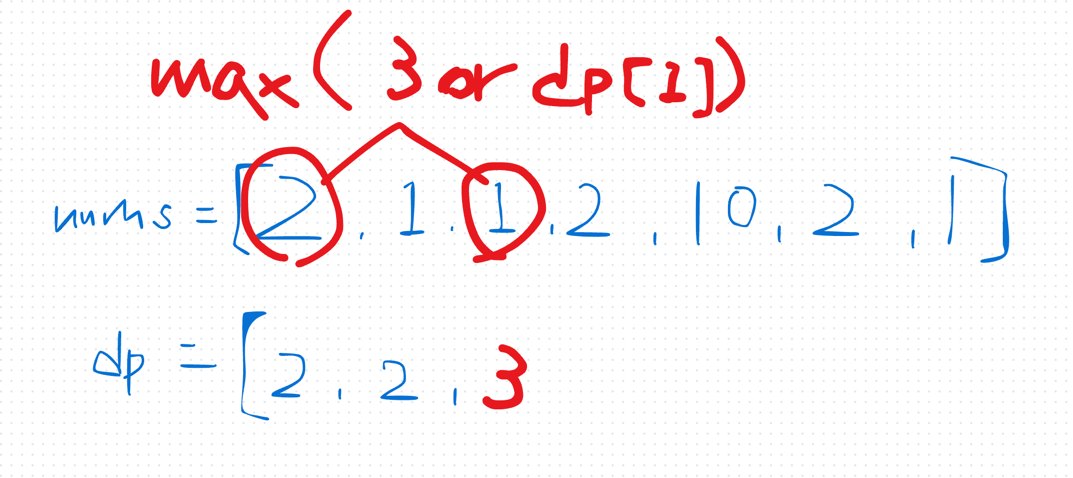 max( 3 or dp[1])
nums = [2, 1, 1, 2, 10, 2, 1]
dp = [2, 2, 3